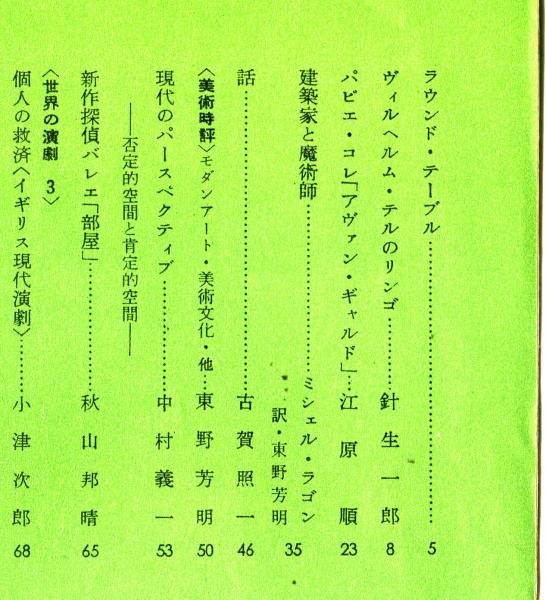 ラウンド・テーブル…………………………5
ヴィルヘルム・テルのリンゴ…………針生一郎 8
パビエ・コレ「アヴァン・ギャルド」…江原順 23
建築家と魔術師…………………ミシェル・ラゴン
訳・東野芳明 35
話…………………………………古賀照一 46
〈美術時評〉モダンアート・美術文化・他…東野芳明 50
現代のパースペクティブ…………中村義一 53
――否定的空間と肯定的空間――
新作探偵バレエ「部屋」…………秋山邦晴 65
〈世界の演劇 3〉
個人の救済〈イギリス現代演劇〉……小津次郎 68